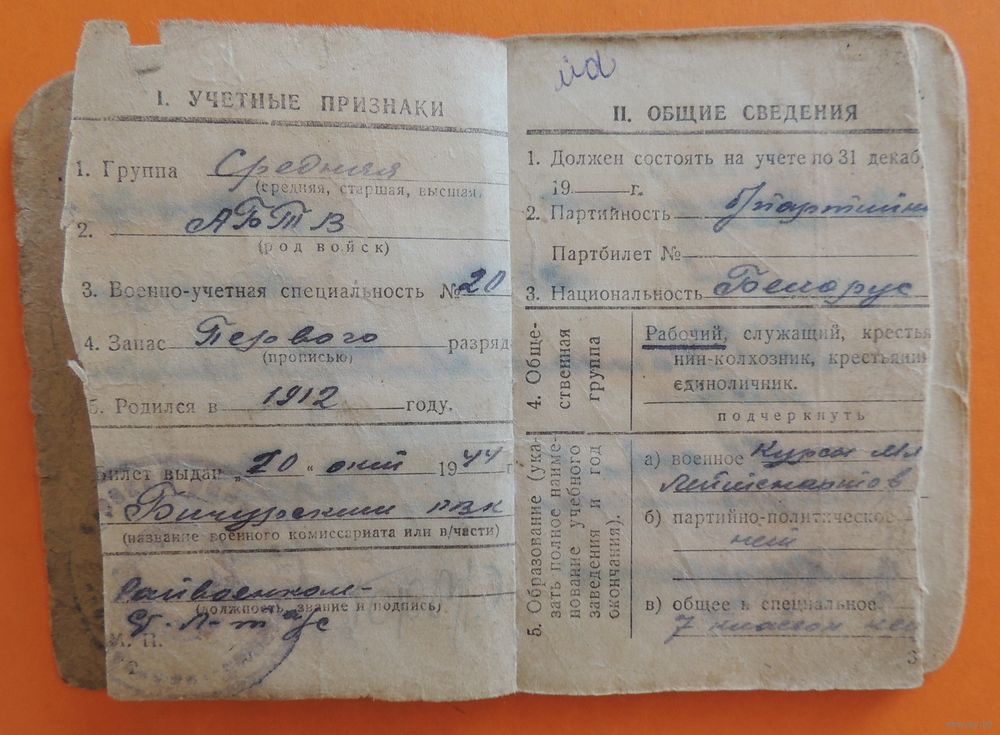 I. УЧЕТНЫЕ ПРИЗНАКИ
1. Группа Средняя
(средняя, старшая, высшая
2. АБТВ
(род войск)
3. Военно-учетная специальность № 20
4. Запас Первого разряд
(прописью)
5. Родился в 1912 году.
Билет выдан „20“ окт 1944 г
Бичурским РВК
(название военного комиссариата или в/части)
Райвоенком-
(должность, звание и подпись)
Ст. Л-т
М. П.
II. ОБЩИЕ СВЕДЕНИЯ
1. Должен состоять на учете по 31 декаб
19 г.
2. Партийность б/партийн
Партбилет №
3. Национальность Белорус
4. Обще-
ственная
группа
Рабочий, служащий, кресть
нин-колхозник, крестьянин
единоличник.
подчеркнуть
5. Образование (ука-
зать полное наиме-
нование учебного
заведения и год
окончания).
а) военное Курсы Мл
Лейтенантов
б) партийно-политическое
нет
в) общее и специальное
7 классов
3